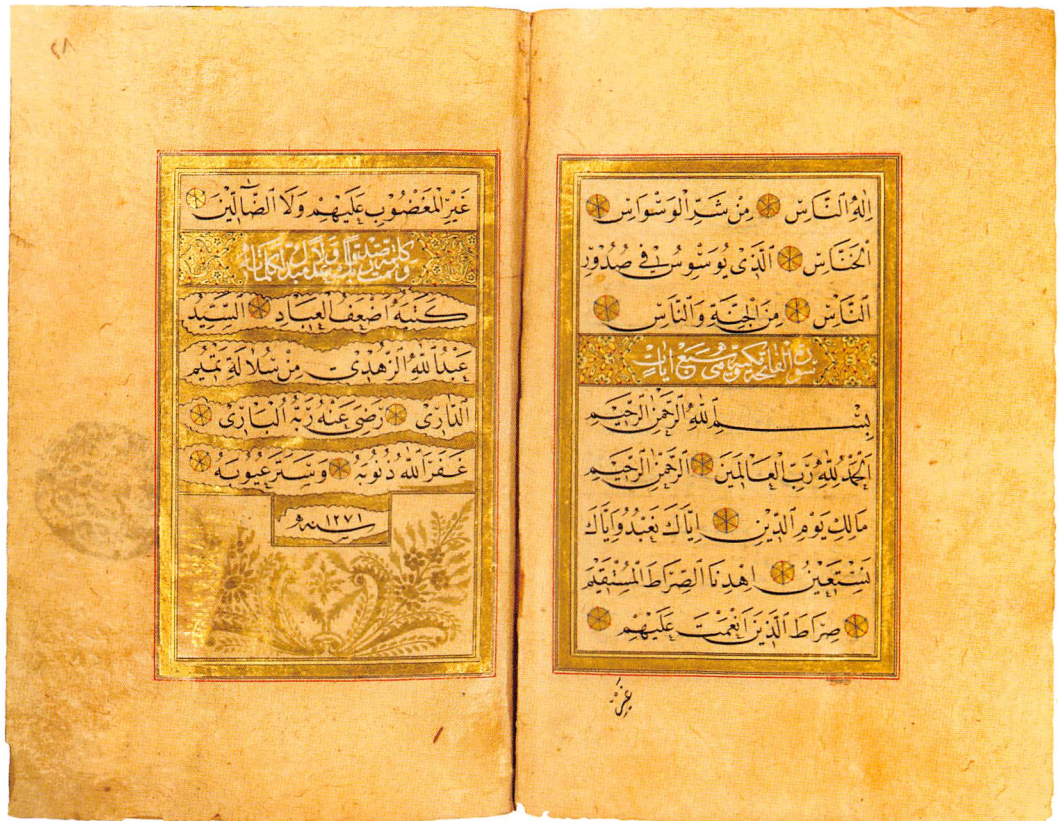 إِلٰهِ النَّاسِ مِنْ شَرِّ الْوَسْوَاسِ
الْخَنَّاسِ الَّذِي يُوَسْوِسُ فِي صُدُورِ
النَّاسِ مِنَ الْجِنَّةِ وَالنَّاسِ
سورة الفاتحة مكية وهي سبع آيات
بِسْمِ اللهِ الرَّحْمٰنِ الرَّحِيمِ
الْحَمْدُ لِلّٰهِ رَبِّ الْعَالَمِينَ الرَّحْمٰنِ الرَّحِيمِ
مَالِكِ يَوْمِ الدِّينِ إِيَّاكَ نَعْبُدُ وَإِيَّاكَ
نَسْتَعِينُ اِهْدِنَا الصِّرَاطَ الْمُسْتَقِيمَ
صِرَاطَ الَّذِينَ أَنْعَمْتَ عَلَيْهِمْ
غير
٢٨
غَيْرِ الْمَغْضُوبِ عَلَيْهِمْ وَلَا الضَّالِّينَ
وتمت كلمة ربك صدقا وعدلا لا مبدل لكلماته
كَتَبَهُ أَضْعَفُ الْعِبَادِ السَّيِّدُ
عَبْدُ اللهِ الزُّهْدِي مِنْ سُلَالَةِ تَمِيمِ
الدَّارِي رَضِيَ عَنْهُ رَبُّهُ الْبَارِي
غَفَرَ اللهُ ذُنُوبَهُ وَسَتَرَ عُيُوبَهُ
سنه ١٢٧١